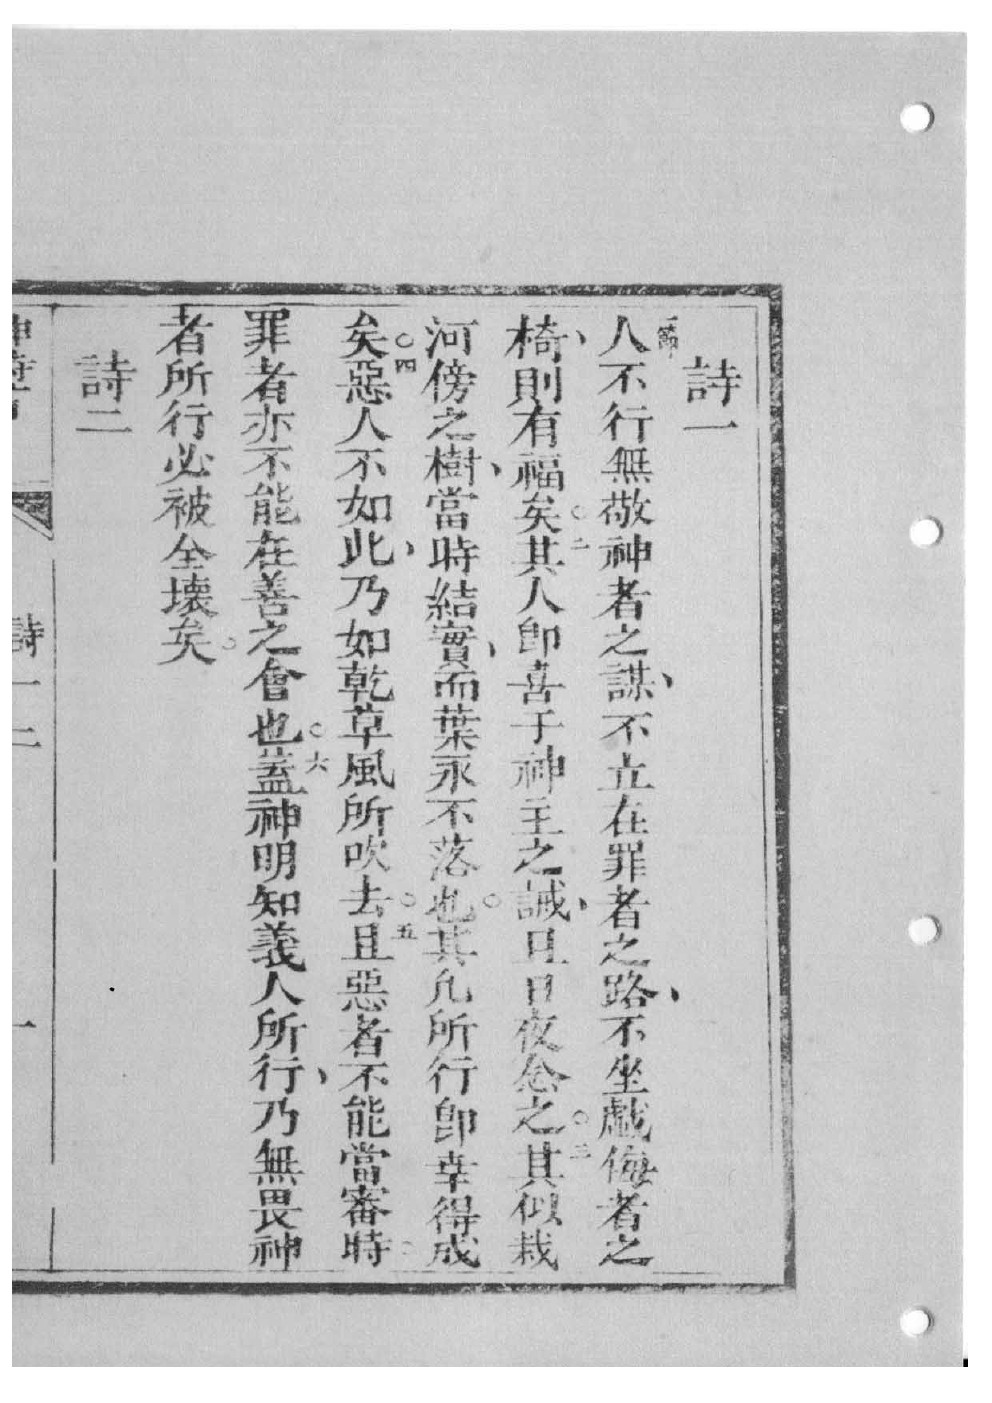 詩一
一節人不行無敬神者之謀、不立在罪者之路、不坐戲侮者之
椅、則有福矣○二其人卽喜于神主之誡、且日夜念之○三其似栽
河傍之樹、當時結實、而葉永不落也○其凡所行卽幸得成
矣○四惡人不如此、乃如乾草風所吹去○五且惡者不能當審時○
罪者亦不能在善之會也○六蓋神明知義人所行、乃無畏神
者所行必被全壞矣○
詩二
詩一二
一